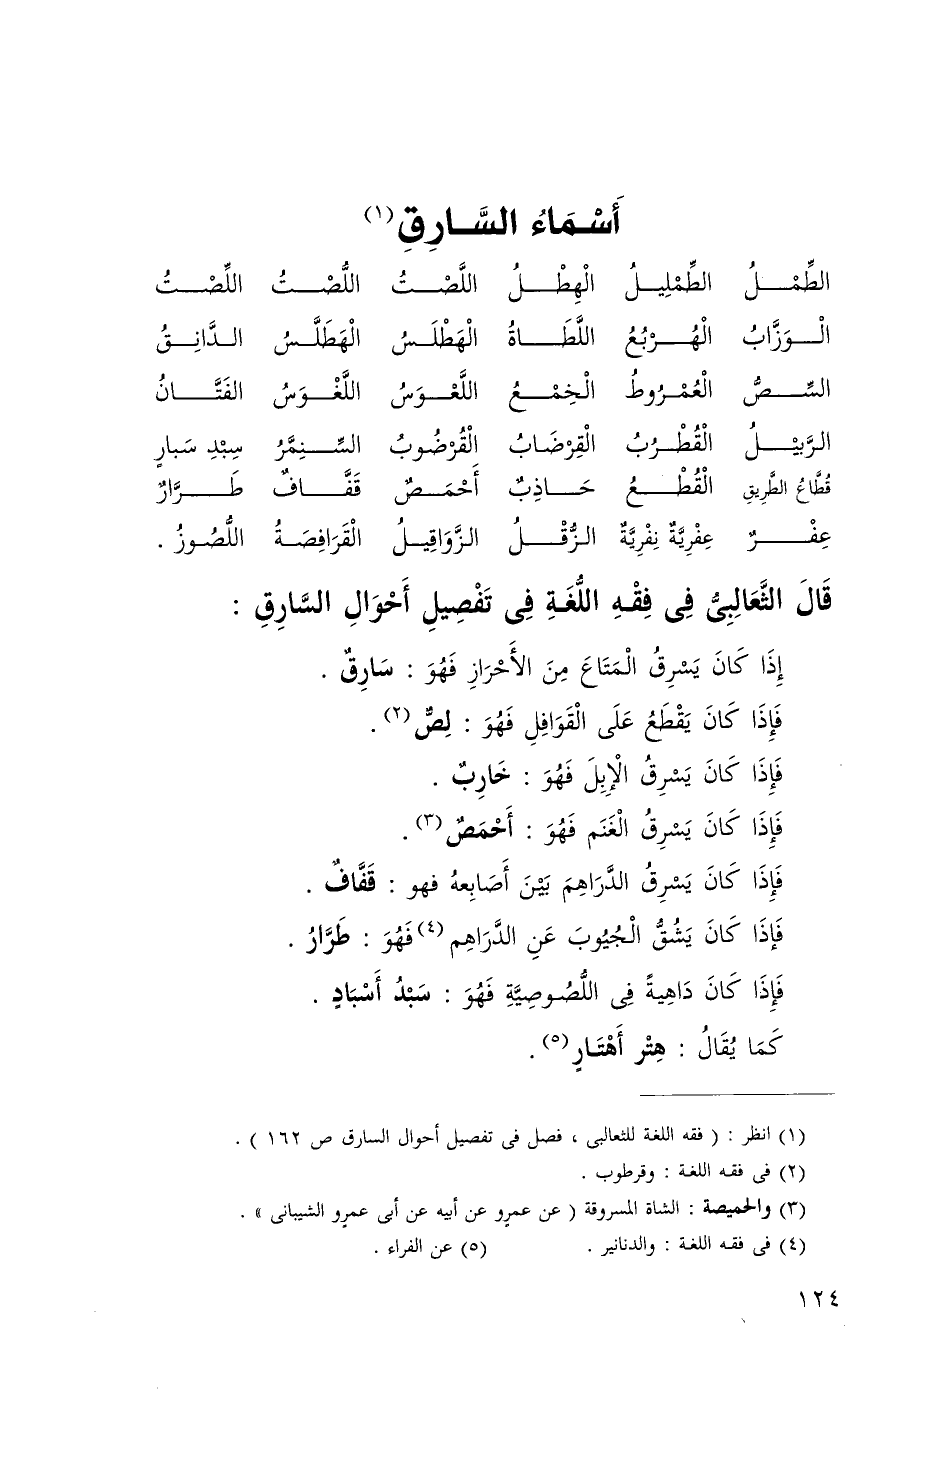 أَسْمَاءُ السَّارِقِ (١)
الطِّمْلُ الطِّمْلِيلُ الْهِطْلُ اللَّصْتُ اللُّصْتُ اللِّصْتُ
الْوَزَّابُ الْهُرْبُعُ اللَّطَاةُ الْهَطْلَسُ الْهَطَلَّسُ الدَّانِقُ
السِّصُّ الْعُمْرُوطُ الْخِمْعُ اللَّعْوَسُ اللَّغْوَسُ الفَتَّانُ
الرَّبِيْلُ الْقُطْرُبُ الْقِرْضَابُ الْقُرْضُوبُ السِّنِمَّرُ سِبْدِ سَبَارٍ
قُطَّاعُ الطَّرِيقِ الْقُطْعُ حَاذِبٌ أَحْمَصٌ قَفَّافٌ طَرَّارٌ
عِفْرٌ عِفْرِيَّةٌ نِفْرِيَّةٌ الزُّقْلُ الزَّوَاقِيلُ الْقَرَافِصَةُ اللُّصُوزُ .
قَالَ الثَّعَالِبِىُّ فِى فِقْهِ اللُّغَةِ فِى تَفْصِيلِ أَحْوَالِ السَّارِقِ :
إِذَا كَانَ يَسْرِقُ الْمَتَاعَ مِنَ الأَحْرَازِ فَهُوَ : سَارِقٌ .
فَإِذَا كَانَ يَقْطَعُ عَلَى الْقَوَافِلِ فَهُوَ : لِصٌّ (٢) .
فَإِذَا كَانَ يَسْرِقُ الْإِبِلَ فَهُوَ : خَارِبٌ .
فَإِذَا كَانَ يَسْرِقُ الْغَنَمِ فَهُوَ : أَحْمَصٌ (٣) .
فَإِذَا كَانَ يَسْرِقُ الدَّرَاهِمَ بَيْنَ أَصَابِعهُ فهو : قَفَّافٌ .
فَإِذَا كَانَ يَشُقُّ الْجُيُوبَ عَنِ الدَّرَاهِمِ (٤) فَهُوَ : طَرَّارُ .
فَإِذَا كَانَ دَاهِيةً فِى اللُّصُوصِيَّةِ فَهُوَ : سَبْدُ أَسْبَادٍ .
كَمَا يُقَالُ : هِتْر أَهْتَارٍ (٥) .
(١) انظر : ( فقه اللغة للثعالبى ، فصل فى تفصيل أحوال السارق ص ١٦٢ ) .
(٢) فى فقه اللغة : وقرطوب .
(٣) والحميصة : الشاة المسروقة ( عن عمرو عن أبيه عن أبى عمرو الشيبانى » .
(٤) فى فقه اللغة : والدنانير . (٥) عن الفراء .
١٢٤